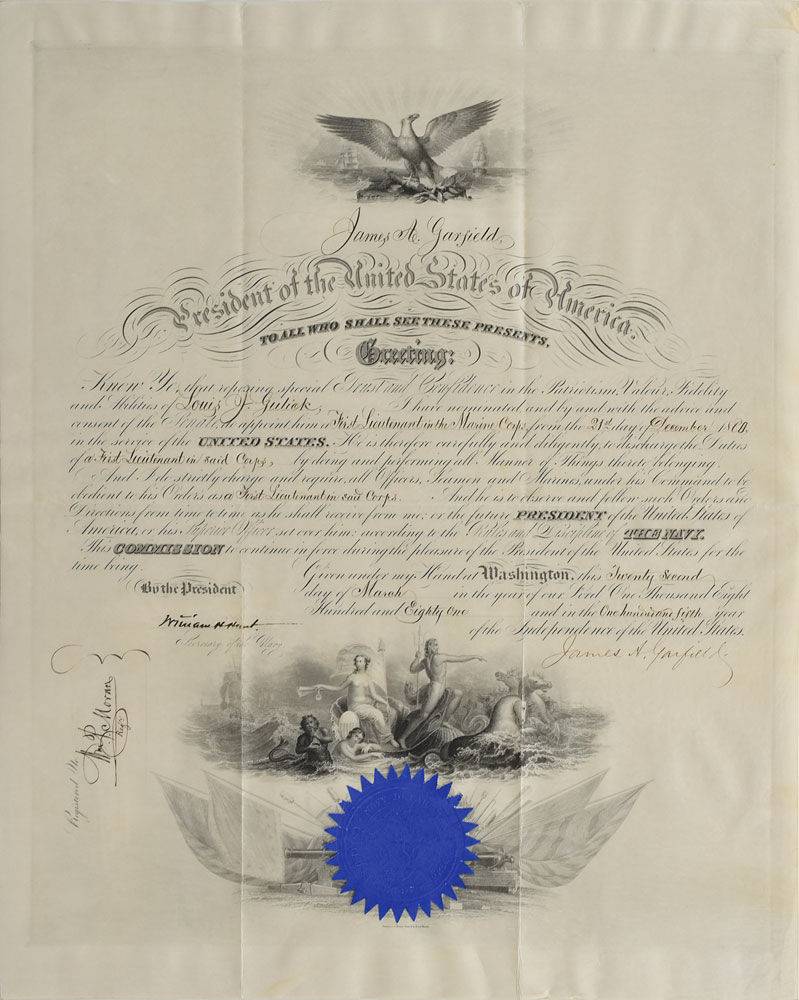 James A. Garfield,
President of the United States of America.
TO ALL WHO SHALL SEE THESE PRESENTS,
Greeting:
Know Ye, that reposing special Trust and Confidence in the Patriotism, Valour, Fidelity
and Abilities of Louis J. Gulick, I have nominated and by and with the advice and
consent of the Senate, do appoint him a First Lieutenant in the Marine Corps from the 21st day of December 1880,
in the service of the UNITED STATES. He is therefore carefully and diligently to discharge the Duties
of a First Lieutenant in said Corps, by doing and performing all Manner of Things thereto belonging.
And I do strictly charge and require all Officers, Seamen and Marines, under his Command to be
obedient to his Orders as a First Lieutenant in said Corps. And he is to observe and follow such Orders and
Directions from time to time as he shall receive from me, or the future PRESIDENT of the United States of
America, or his Superior Officer set over him, according to the Rules and Discipline of THE NAVY.
This COMMISSION to continue in force during the pleasure of the President of the United States for the
time being.
Given under my Hand at Washington, this Twenty Second
By the President
day of March in the year of our Lord One Thousand Eight
Hundred and Eighty One and in the One hundred and fifth year
William H. Hunt
of the Independence of the United States.
Secretary of the Navy
James A. Garfield
Registered No.